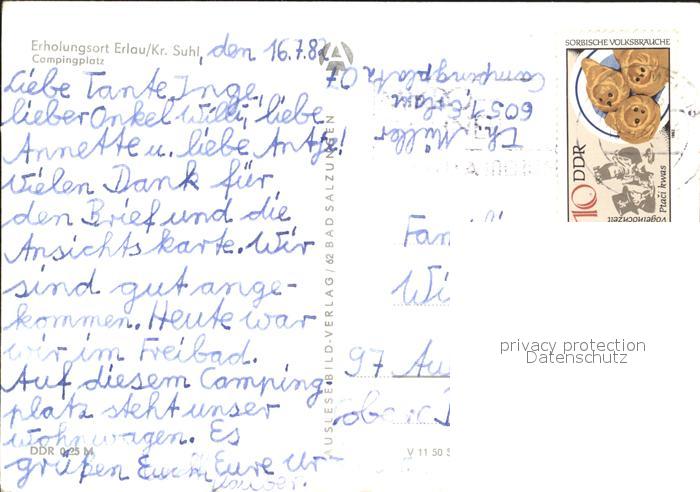 Erholungsort Erlau/Kr. Suhl, den 16.7.82
Campingplatz
Liebe Tante Inge,
lieber Onkel Willi, liebe
Annette u. liebe Antje!
Vielen Dank für
den Brief und die
Ansichtskarte. Wir
sind gut ange-
kommen. Heute war
wir im Freibad.
Auf diesem Camping-
platz steht unser
Wohnwagen. Es
grüßen Euch Eure Ur-
lauber.
DDR 0,25 M
AUSLESE-BILD-VERLAG / 62 BAD SALZUNGEN
V 11 50
Th. Müller
6051 Erlau
Campingplatz 07
SORBISCHE VOLKSBRÄUCHE
10 DDR
Ptači kwas
Vogelhochzeit
Fam
Wi
97 Au
privacy protection
Datenschutz